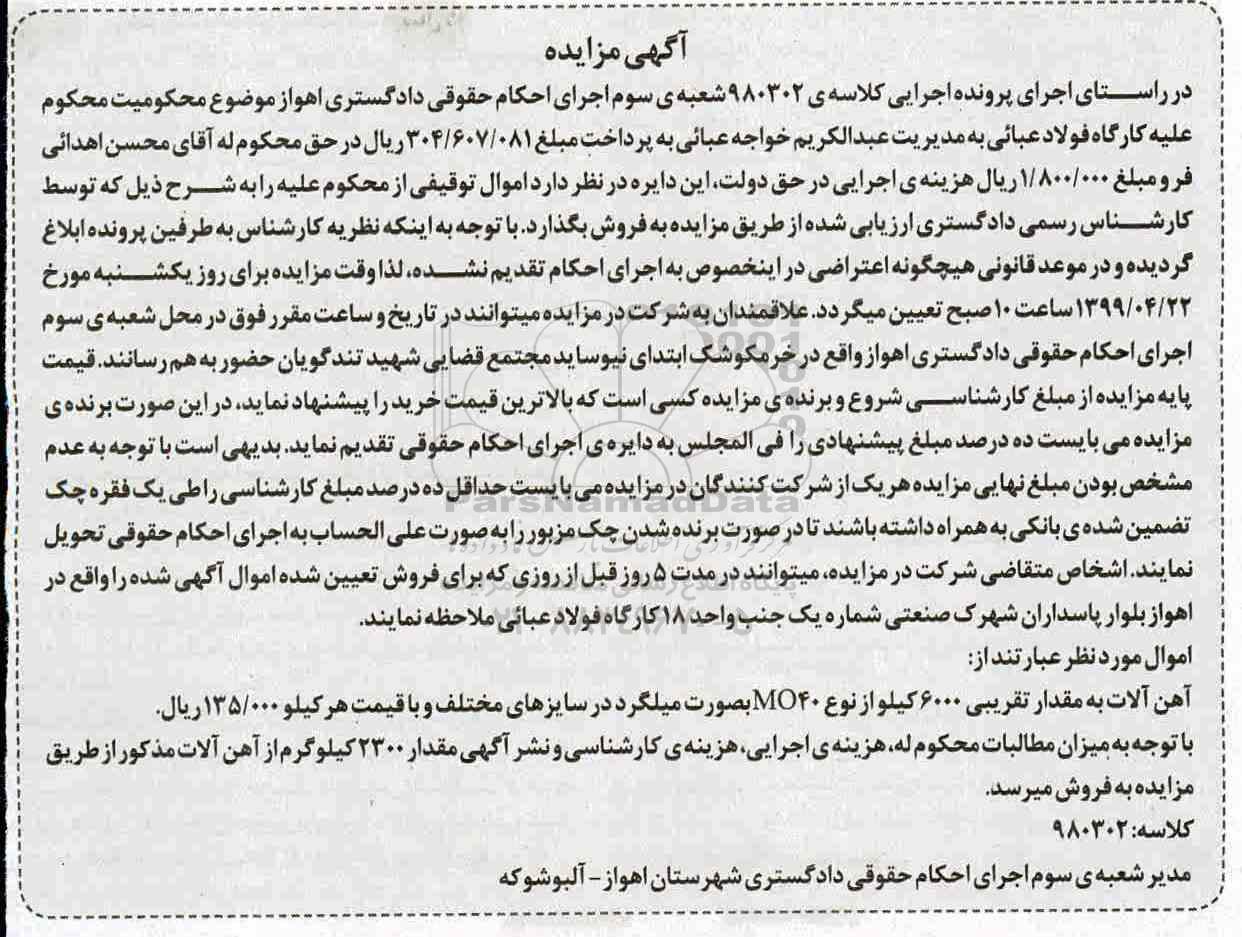 آگهی مزایده
در راستای اجرای پرونده اجرایی کلاسه ی ۹۸۰۳۰۲ شعبه ی سوم اجرای احکام حقوقی دادگستری اهواز موضوع محکومیت محکوم
علیه کارگاه فولاد عبائی به مدیریت عبدالکریم خواجه عبائی به پرداخت مبلغ ۳۰۴/۶۰۷/۰۸۱ ریال در حق محکوم له آقای محسن اهدائی
فر و مبلغ ۱/۸۰۰/۰۰۰ ریال هزینه ی اجرایی در حق دولت، این دایره در نظر دارد اموال توقیفی از محکوم علیه را به شرح ذیل که توسط
کارشناس رسمی دادگستری ارزیابی شده از طریق مزایده به فروش بگذارد. با توجه به اینکه نظریه کارشناس به طرفین پرونده ابلاغ
گردیده و در موعد قانونی هیچگونه اعتراضی در اینخصوص به اجرای احکام تقدیم نشده، لذا وقت مزایده برای روز یکشنبه مورخ
۱۳۹۹/۰۴/۲۲ ساعت ۱۰ صبح تعیین میگردد. علاقمندان به شرکت در مزایده میتوانند در تاریخ و ساعت مقرر فوق در محل شعبه ی سوم
اجرای احکام حقوقی دادگستری اهواز واقع در خرمکوشک ابتدای نیوساید مجتمع قضایی شهید تندگویان حضور به هم رسانند. قیمت
پایه مزایده از مبلغ کارشناسی شروع و برنده ی مزایده کسی است که بالاترین قیمت خرید را پیشنهاد نماید، در این صورت برنده ی
مزایده می بایست ده درصد مبلغ پیشنهادی را فی المجلس به دایره ی اجرای احکام حقوقی تقدیم نماید. بدیهی است با توجه به عدم
مشخص بودن مبلغ نهایی مزایده هر یک از شرکت کنندگان در مزایده می بایست حداقل ده درصد مبلغ کارشناسی را طی یک فقره چک
تضمین شده ی بانکی به همراه داشته باشند تا در صورت برنده شدن چک مزبور را به صورت علی الحساب به اجرای احکام حقوقی تحویل
نمایند. اشخاص متقاضی شرکت در مزایده، میتوانند در مدت ۵ روز قبل از روزی که برای فروش تعیین شده اموال آگهی شده را واقع در
اهواز بلوار پاسداران شهرک صنعتی شماره یک جنب واحد ۱۸ کارگاه فولاد عبائی ملاحظه نمایند.
اموال مورد نظر عبارتند از:
آهن آلات به مقدار تقریبی ۶۰۰۰ کیلو از نوع MO۴۰ بصورت میلگرد در سایزهای مختلف و با قیمت هر کیلو ۱۳۵/۰۰۰ ریال.
با توجه به میزان مطالبات محکوم له، هزینه ی اجرایی، هزینه ی کارشناسی و نشر آگهی مقدار ۲۳۰۰ کیلوگرم از آهن آلات مذکور از طریق
مزایده به فروش میرسد.
کلاسه: ۹۸۰۳۰۲
مدیر شعبه ی سوم اجرای احکام حقوقی دادگستری شهرستان اهواز - آلبوشوکه
ParsNamadData